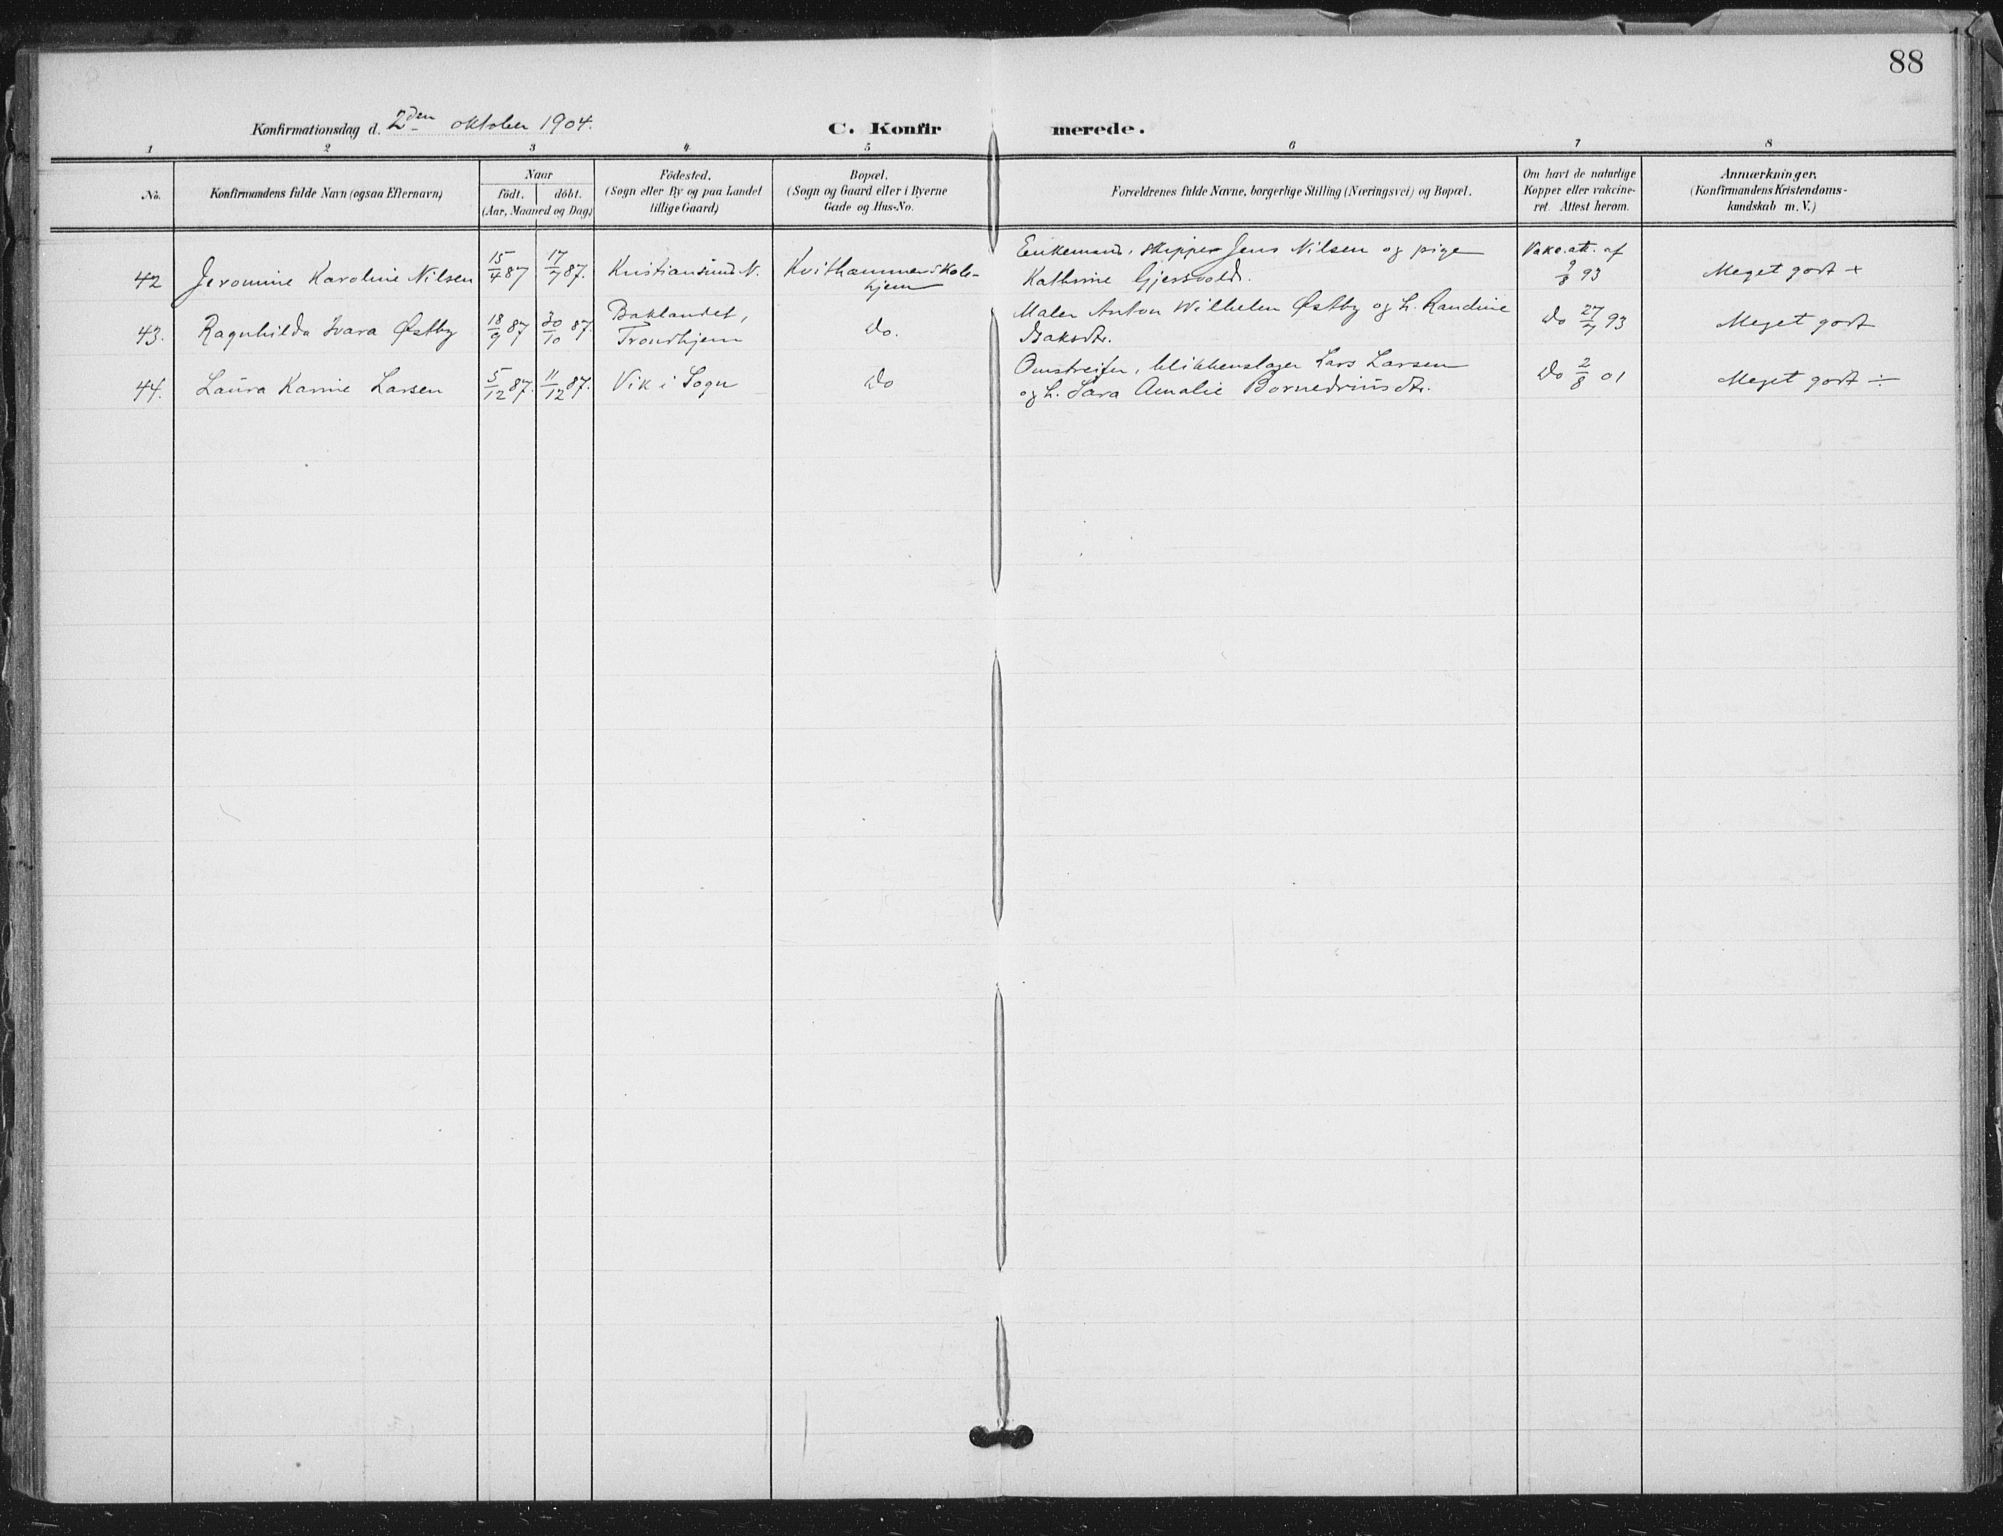 88
Konfirmationsdag d. 2den oktober 1904.
C. Konfirmerede.
1 2 3 4 5 6 7 8
No.
Konfirmandens fulde Navn (ogsaa Efternavn)
Naar
födt. döbt.
(Aar, Maaned og Dag)
Födested.
(Sogn eller By og paa Landet
tillige Gaard)
Bopæl.
(Sogn og Gaard eller i Byerne
Gade og Hus-No.
Forældrenes fulde Navne, borgerlige Stilling (Næringsvei) og Bopæl.
Om havt de naturlige
Kopper eller vakcine-
ret. Attest herom.
Anmærkninger.
(Konfirmandens Kristendoms-
kundskab m. V.)
42 Jeromine Karoline Nilsen 15/4 87 17/7 87. Kristiansund N. Kvithammer skole-
hjem
Enkemand, skipper Jens Nilsen og pige
Kathrine Gjersvold.
Vakc. att. af
9/8 93
Meget godt +
43. Ragnhilda Ivara Østby 18/9 87 30/10 87. Baklandet,
Trondhjem
Do.
Maler Anton Wilhelm Østby og h. Randine
Isaksdtr.
Do 27/7 93
Meget godt
44. Laura Karine Larsen 5/12 87. 11/12 87. Vik i Sogn Do
Omstreifer, blikkenslager Lars Larsen
og h. Sara Amalie
Do 2/8 01
Meget godt ÷